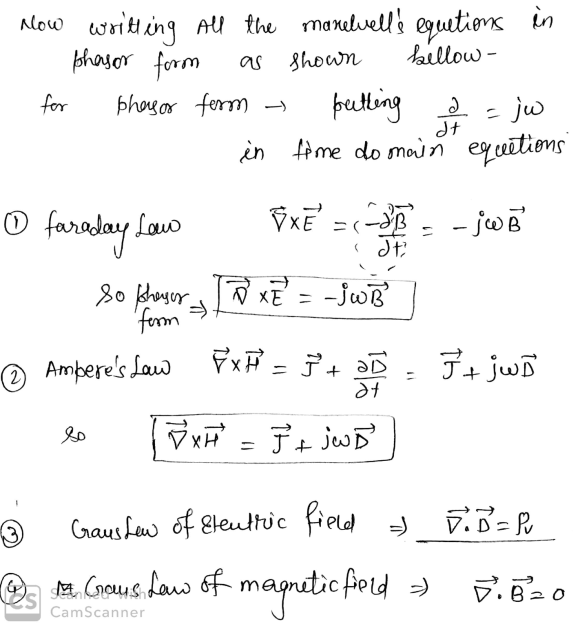 Now writting All the maxelwell's equetions in
phasor form as shown bellow -
for phasor form → putting ∂/∂t = jω
in time domain equetions
① faraday Law ∇×E = -∂B/∂t = - jωB
So phasor form ⇒ ∇×E = -jωB
② Ampere's Law ∇×H = J + ∂D/∂t = J + jωD
so ∇×H = J + jωD
③ Gaus Law of Electric field ⇒ ∇.D = ρv
④ Gaus Law of magnetic field ⇒ ∇.B = 0
CS Scanned with
CamScanner